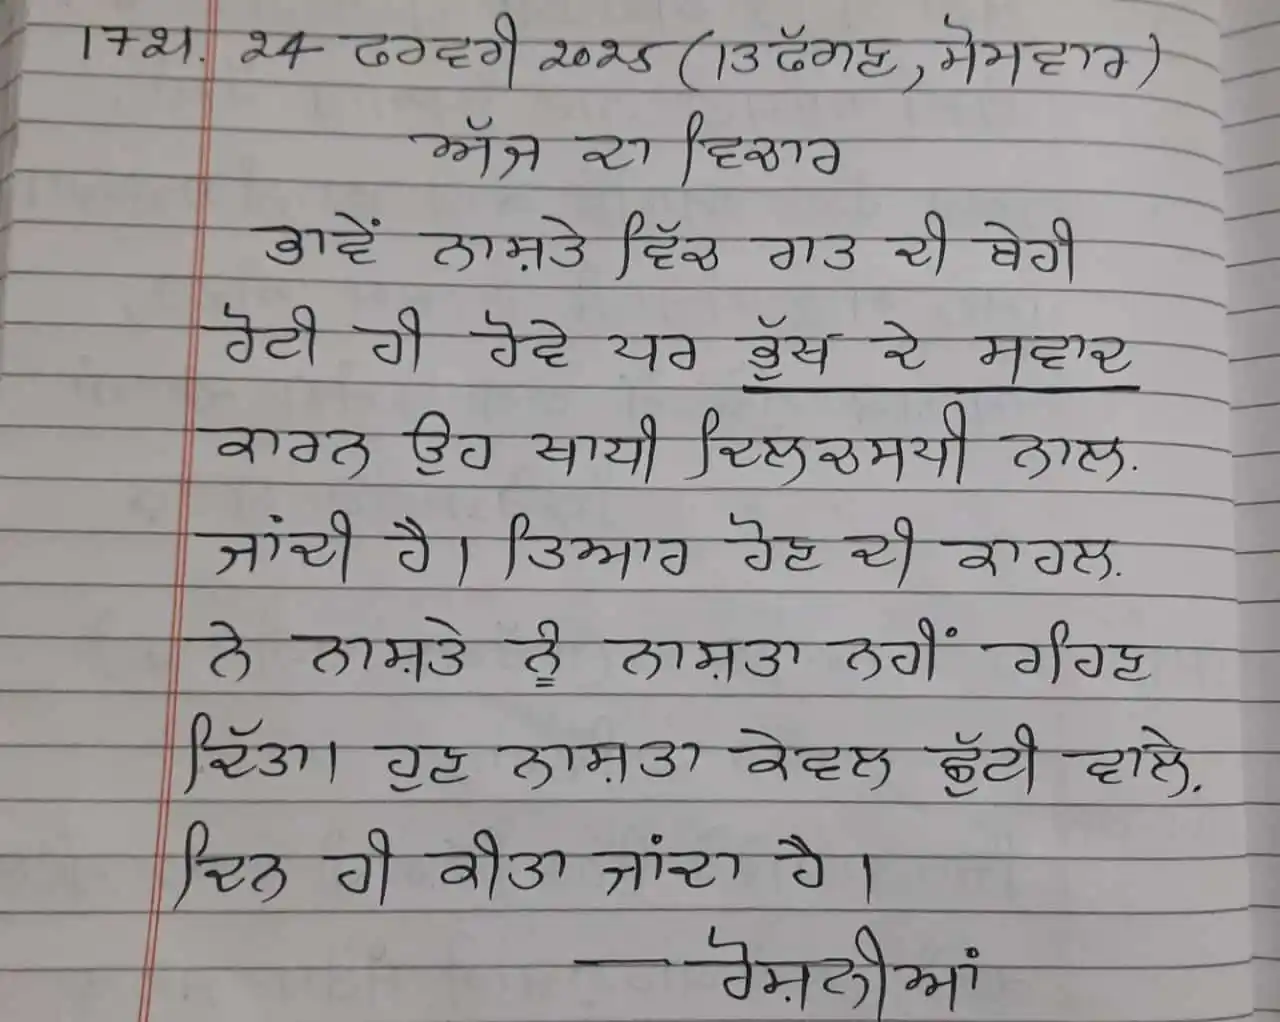 1721. 24 ਫਰਵਰੀ 2025 (13 ਫੱਗਣ, ਸੋਮਵਾਰ)
ਅੱਜ ਦਾ ਵਿਚਾਰ
ਭਾਵੇਂ ਨਾਸ਼ਤੇ ਵਿੱਚ ਰਾਤ ਦੀ ਬੇਹੀ
ਰੋਟੀ ਹੀ ਹੋਵੇ ਪਰ ਭੁੱਖ ਦੇ ਸਵਾਦ
ਕਾਰਨ ਉਹ ਖਾਧੀ ਦਿਲਚਸਪੀ ਨਾਲ
ਜਾਂਦੀ ਹੈ। ਤਿਆਰ ਹੋਣ ਦੀ ਕਾਹਲ
ਨੇ ਨਾਸ਼ਤੇ ਨੂੰ ਨਾਸ਼ਤਾ ਨਹੀਂ ਰਹਿਣ
ਦਿੱਤਾ। ਹੁਣ ਨਾਸ਼ਤਾ ਕੇਵਲ ਛੁੱਟੀ ਵਾਲੇ
ਦਿਨ ਹੀ ਕੀਤਾ ਜਾਂਦਾ ਹੈ।
— ਰੋਸ਼ਨੀਆਂ